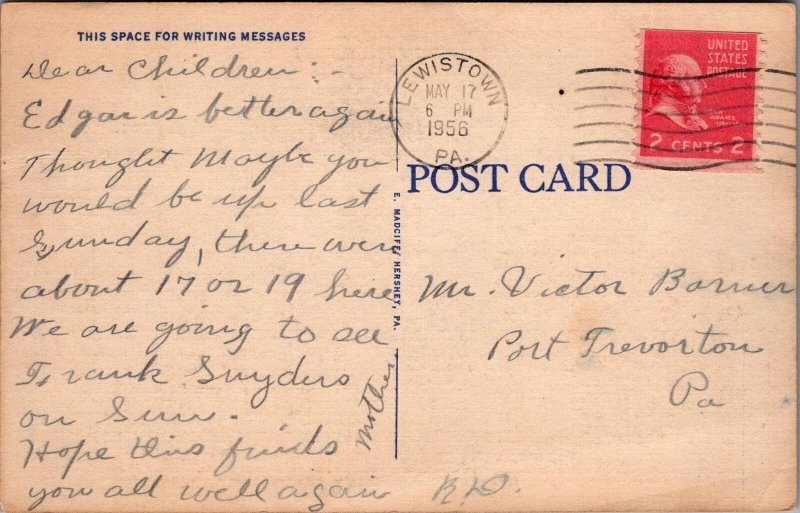 THIS SPACE FOR WRITING MESSAGES
Dear Children:-
Edgar is better again
Thought Maybe you
would be up last
Sunday, there were
about 17 or 19 here
We are going to see
Frank Snyders
on Sun.
Hope this finds
you all well again
Mother
E. MADCIFF, HERSHEY, PA.
LEWISTOWN
MAY 17
6 PM
1956
PA.
UNITED
STATES
POSTAGE
ADAMS
2 CENTS 2
POST CARD
Mr. Victor Barner
Port Trevorton
Pa
R.D.